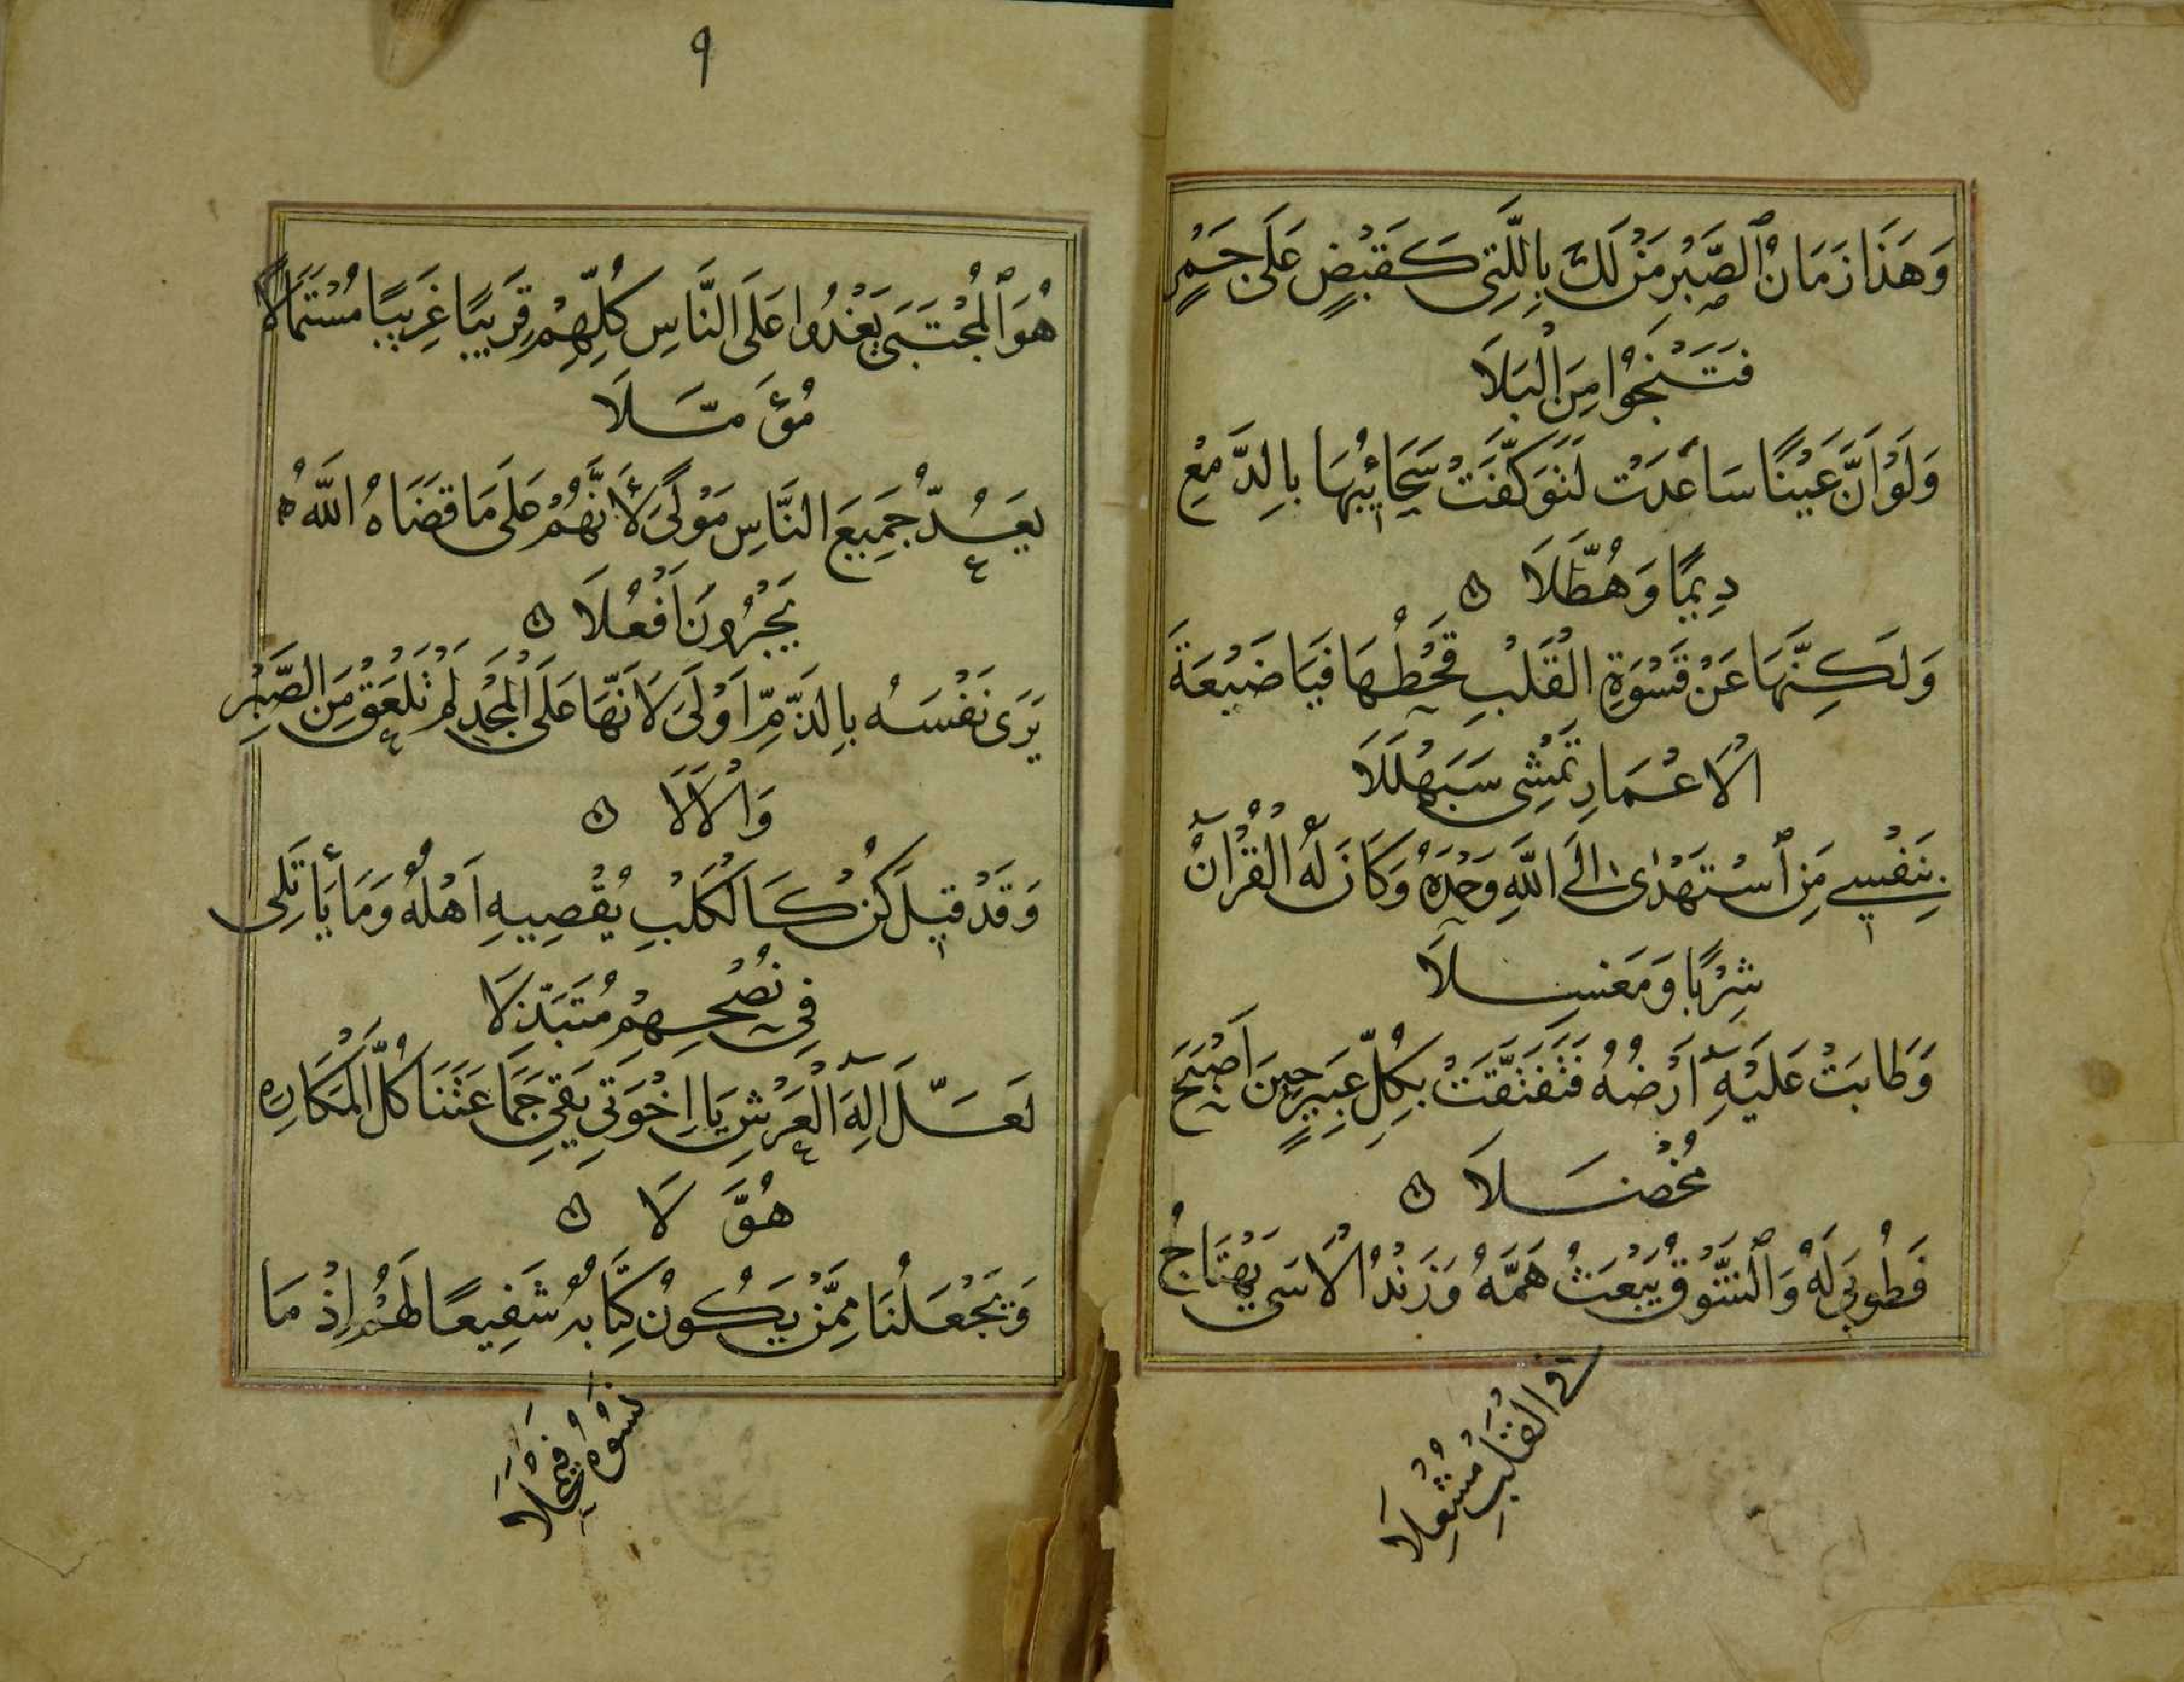 وَهَذَا زَمَانُ ٱلصَّبْرِ مَنْ لَكَ بِاللَّتِى كَقَبْضٍ عَلَى جَمْرٍ
فَتَنْجُوْا مِنَ الْبَلَا
وَلَوْ اَنَّ عَيْنًا سَاعَدَتْ لَتَوَكَّفَتْ سَحَائِبُهَا بِالدَّمْعِ
دِيمًا وَهُطَّلَا
وَلَكِنَّهَا عَنْ قَسْوَةِ الْقَلْبِ قَحْطُهَا فَيَا ضَيْعَةَ
الْاَعْمَارِ تَمْشِى سَبَهْلَلَا
بِنَفْسِي مَنِ ٱسْتَهْدٰى اِلَى اللَّهِ وَحْدَهُ وَكَانَ لَهُ الْقُرْآنُ
شِرْبًا وَمَغْسِلَا
وَطَابَتْ عَلَيْهِ اَرْضُهُ فَتَفَتَّقَتْ بِكُلِّ عَبِيرٍ حِينَ اَصْبَحَ
مُخْضَلَا
فَطُوبَى لَهُ وَٱلشَّوْقُ يَبْعَثُ هَمَّهُ وَزَنْدُ الْاَسَى يَهْتَاجُ
فِى الْقَلْبِ مُشْعِلَا
٩
هُوَ ٱلْمُجْتَبَى يَغْدُوا عَلَى النَّاسِ كُلِّهِمْ قَرِيبًا غَرِيبًا مُسْتَمَالًا
مُؤَمَّلَا
يَعُدُّ جَمِيعَ النَّاسِ مَوْلًى لِأَنَّهُمْ عَلَى مَا قَضَاهُ اللَّهُ
يَجْرُونَ اَفْعُلَا
يَرَى نَفْسَهُ بِالذَّمِّ اَوْلَى لِاَنَّهَا عَلَى الْمَجْدِ لَمْ تَلْعَقْ مِنَ الصَّبْرِ
وَالْاَلَا
وَقَدْ قِيلَ كُنْ كَالْكَلْبِ يُقْصِيهِ اَهْلُهُ وَمَا يَأْتَلِى
فِى نُصْحِهِمْ مُتَبَذِّلَا
لَعَلَّ اِلَهَ الْعَرْشِ يَا اِخْوَتِى يَقِى جَمَاعَتَنَا كُلَّ الْمَكَارِهِ
هُوَّلَا
وَيَجْعَلُنَا مِمَّنْ يَكُونُ كِتَابُهُ شَفِيعًا لَهُمْ اِذْ مَا
نَسُوْهُ فَيَمْحَلَا